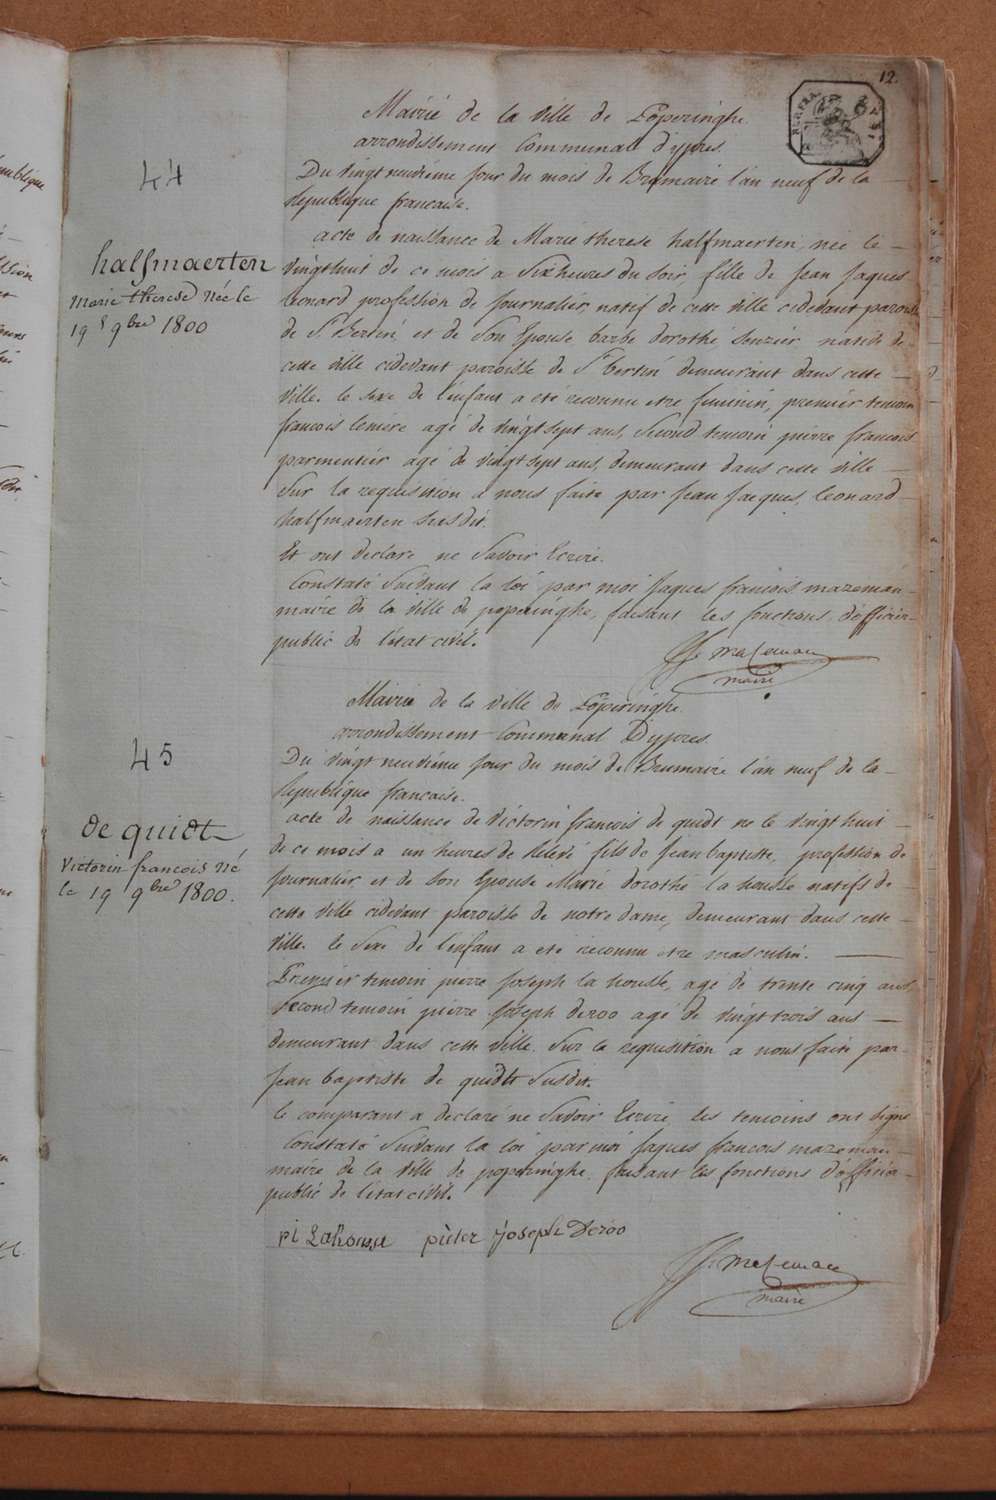 12.
Mairié de la ville de Poperinghe.
arrondissement Communal d'ypres.
Du vingt neuvième jour du mois de Brumaire l'an neuf de la
Republique francaise.
44
halfmaerten
marie therese née le
19 9bre 1800
acte de naissance de Marie therese halfmaerten, née le
vingthuit de ce mois a six heures du soir, fille de Jean Jaques
Leonard profession de Journalier, natif de cette ville cidevant paroisse
de St Bertin, et de son Epouse barbe dorothé natife de
cette ville cidevant paroisse de St bertin demeurant dans cette
ville. le sexe de l'enfant a été reconnu etre feminin, premier temoin
francois lemire agé de vingt sept ans, second temoin pierre francois
parmentier agé de vingt sept ans, demeurant dans cette ville
Sur la requisition a nous faite par Jean Jacques Leonard
halfmaerten susdit.
Et ont declare ne savoir Ecrire.
Constaté suivant la loi par moi Jaques francois mazeman
maire de la ville de poperinghe, faisant les fonctions d'officier
public de l'état civil.
JF. Mazeman
maire
Mairie de la ville de Poperinghe.
arrondissement Communal D'ypres.
Du vingt neuvième jour du mois de Brumaire l'an neuf de la
Republique francaise.
45
de quidt
Victorin francois né
le 19 9bre 1800.
acte de naissance de victorin francois de quidt né le vingt huit
de ce mois a un heures de relevé fils de Jean baptiste, profession de
Journalier, et de son Epouse Marie dorothé la housse natifs de
cette ville cidevant paroisse de notre dame, demeurant dans cette
ville. le sexe de l'enfant a été reconnu etre masculin.
Premier temoin pierre Joseph la housse, agé de trente cinq ans,
second temoin pierre Joseph Deroo agé de vingt trois ans
demeurant dans cette ville. Sur la requisition a nous faite par
Jean baptiste de quidt susdit.
le comparant a declaré ne savoir Ecrire, les temoins ont signé
Constaté suivant la loi par moi Jaques francois mazeman
maire de la ville de poperinghe. faisant les fonctions d'officier
public de l'état civil.
pi Lahousse pieter joseph Deroo
JF. Mazeman
maire